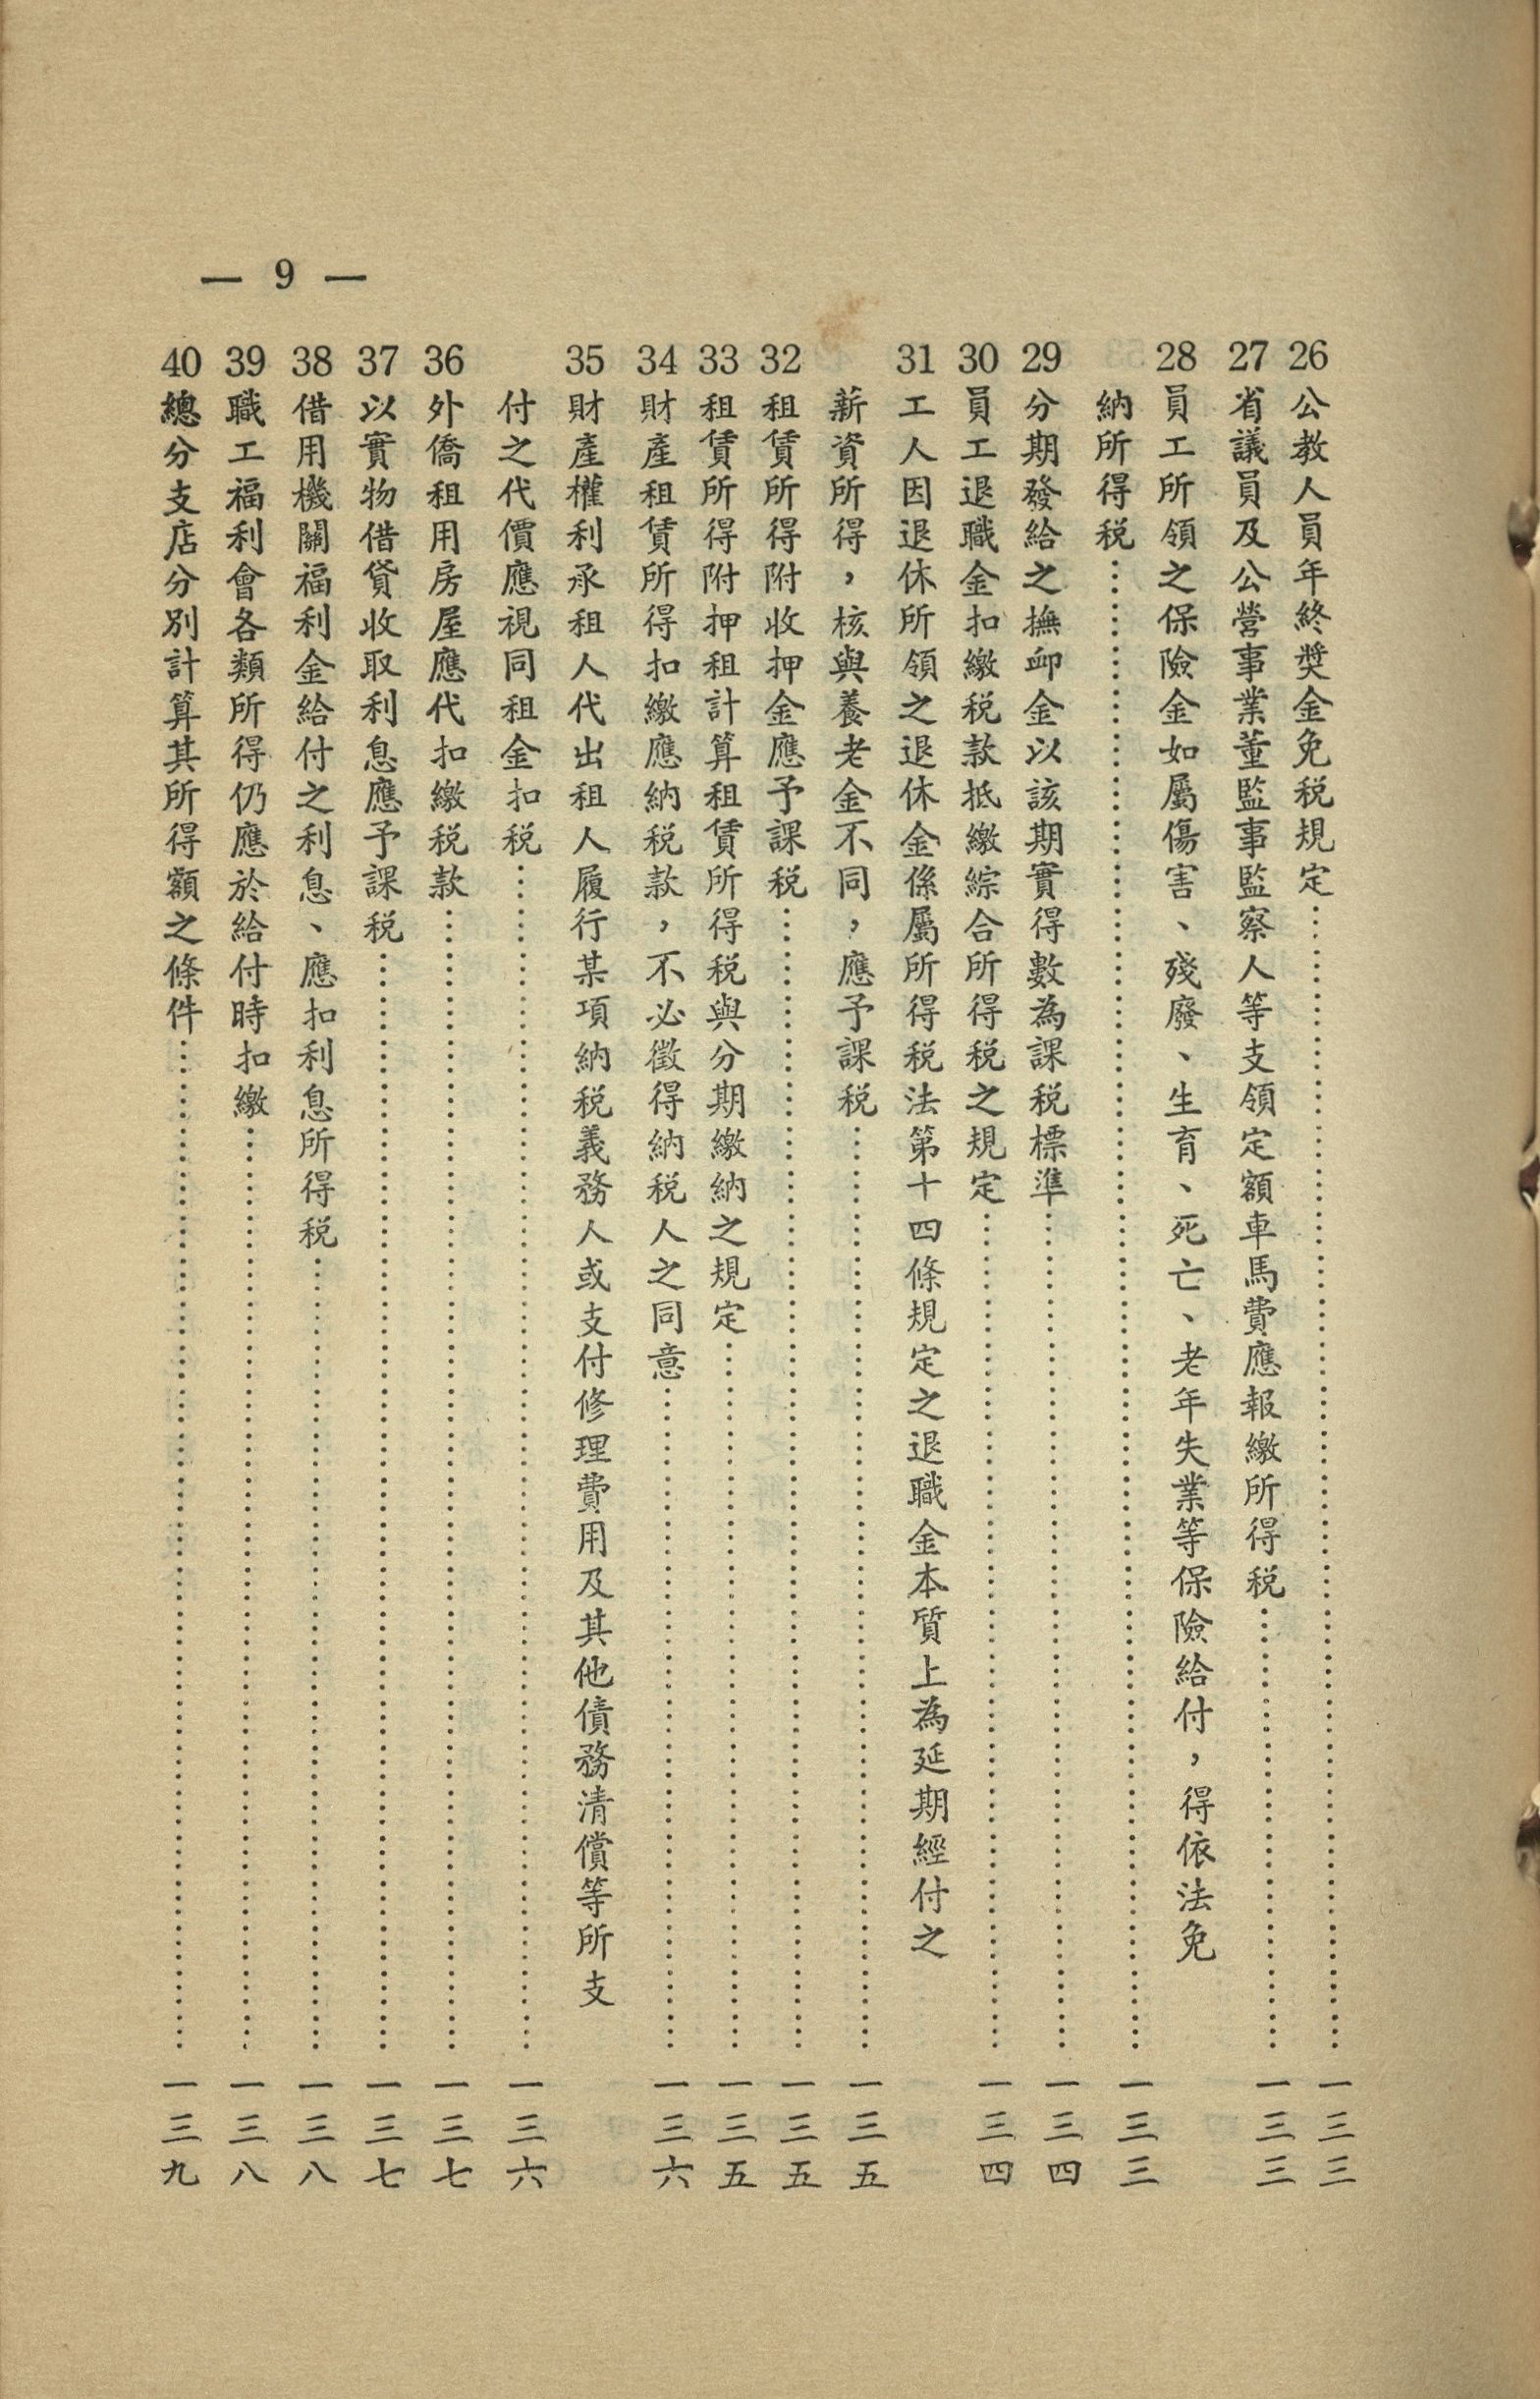 — 9 —
26 公教人員年終獎金免稅規定……一三三
27 省議員及公營事業董監事監察人等支領定額車馬費應報繳所得稅……一三三
28 員工所領之保險金如屬傷害、殘廢、生育、死亡、老年失業等保險給付，得依法免
納所得稅……一三三
29 分期發給之撫卹金以該期實得數為課稅標準……一三四
30 員工退職金扣繳稅款抵繳綜合所得稅之規定……一三四
31 工人因退休所領之退休金係屬所得稅法第十四條規定之退職金本質上為延期經付之
薪資所得，核與養老金不同，應予課稅……一三五
32 租賃所得附收押金應予課稅……一三五
33 租賃所得附押租計算租賃所得稅與分期繳納之規定……一三五
34 財產租賃所得扣繳應納稅款，不必徵得納稅人之同意……一三六
35 財產權利承租人代出租人履行某項納稅義務人或支付修理費用及其他債務清償等所支
付之代價應視同租金扣稅……一三六
36 外僑租用房屋應代扣繳稅款……一三七
37 以實物借貸收取利息應予課稅……一三七
38 借用機關福利金給付之利息、應扣利息所得稅……一三八
39 職工福利會各類所得仍應於給付時扣繳……一三八
40 總分支店分別計算其所得額之條件……一三九